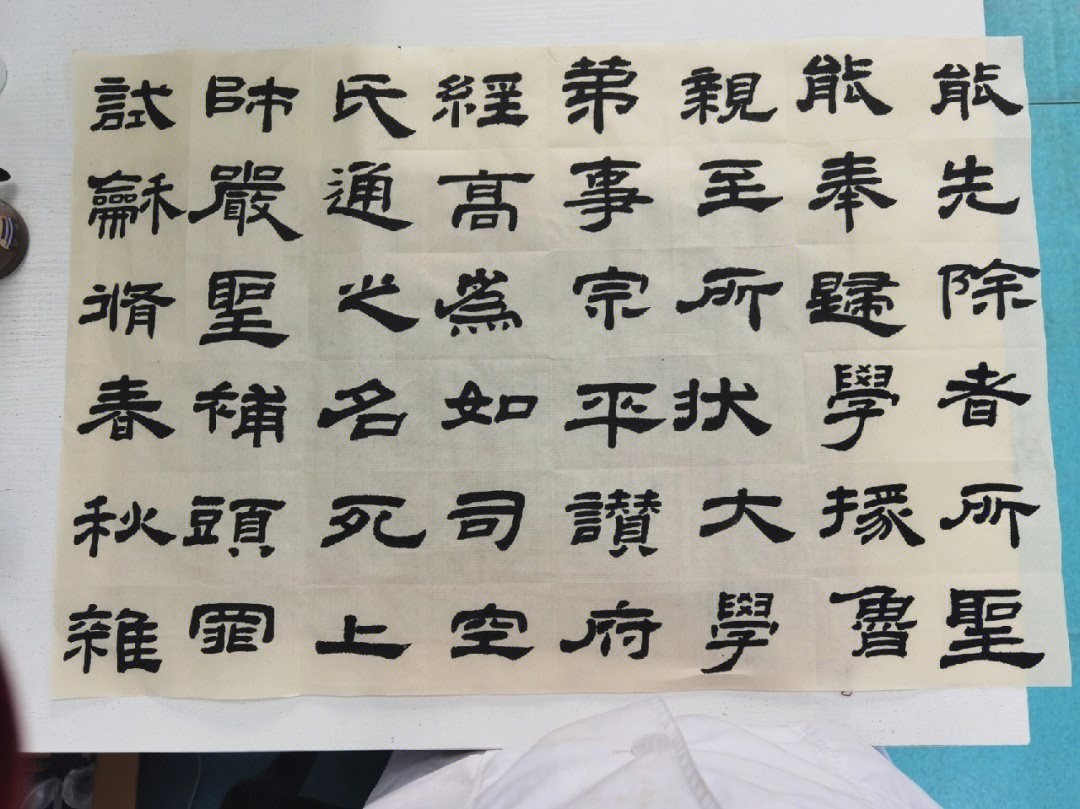 能先除者所聖
能奉歸學掾魯
親至所狀大學
苐事宗平讃府
經高為如司空
氏通之名死上
師嚴聖補頭罪
試龢脩春秋雜